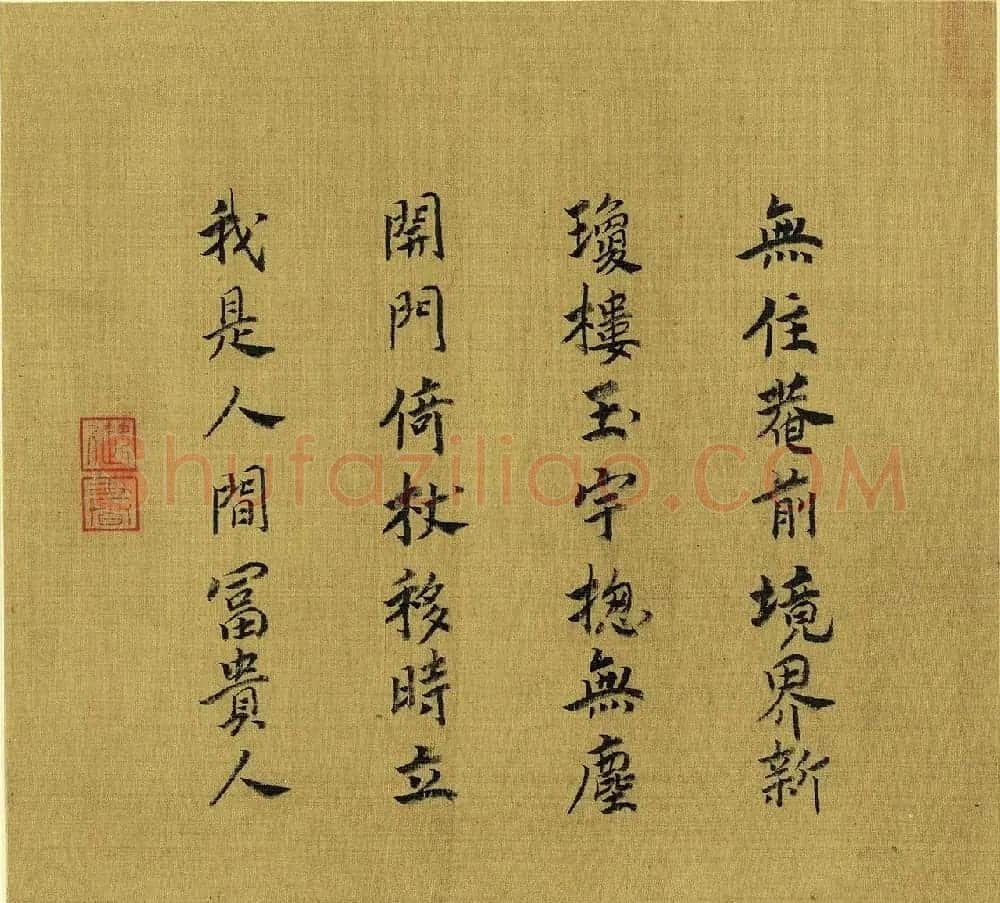 無住菴前境界新
瓊樓玉宇揔無塵
開門倚杖移時立
我是人間冨貴人
Shufaziliao.COM